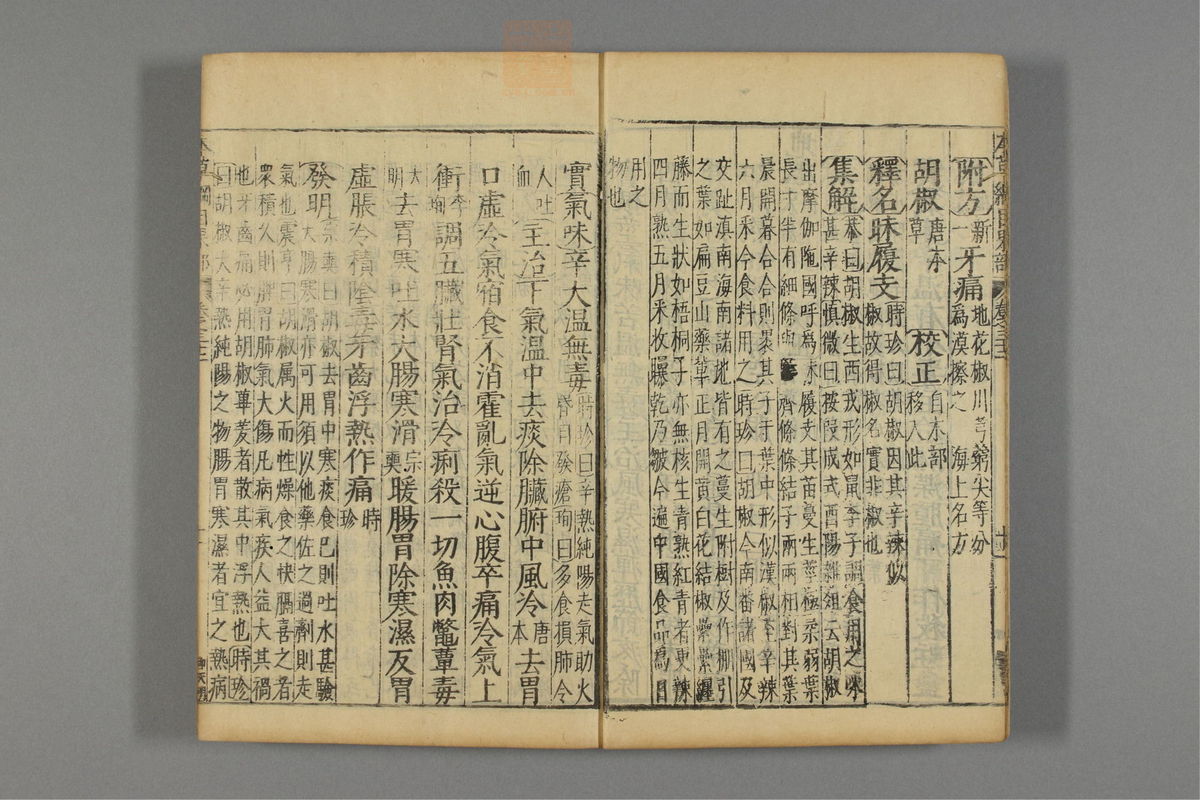 附方新一牙痛地花椒川芎藭尖等分為漠擦之 海上名方
胡椒唐本草 校正自木部移入此
釋名昧履支時珍曰胡椒因其辛辣似椒故得椒名實非椒也
集解恭曰胡椒生西戎形如鼠李子調食用之味甚辛辣慎微曰按段成式酉陽雜俎云胡椒
出摩伽陁國呼為昧履支其苗蔓生莖極柔弱葉
長寸半有細條與 齊條條結子兩兩相對其葉
晨開暮合合則裹其子于葉中形似漢椒至辛辣
六月采今食料用之時珍曰胡椒今南番諸國及
交趾滇南海南諸地皆有之蔓生附樹及作棚引
之葉如扁豆山藥葉正月開黃白花結椒纍纍纏
藤而生狀如梧桐子亦無核生青熟紅青者更辣
四月熟五月采收曝乾乃皺今遍中國食品為日
用之物也
實氣味辛大溫無毒時珍曰辛熱純陽走氣助火昏目發瘡珣曰多食損肺令人吐血
主治下氣溫中去痰除臟腑中風冷唐本去胃
口虛冷氣宿食不消霍亂氣逆心腹卒痛冷氣上
衝李珣調五臟壯腎氣治冷痢殺一切魚肉鱉蕈毒
大明去胃寒吐水大腸寒滑宗奭暖腸胃除寒濕反胃
虛脹冷積陰毒牙齒浮熱作痛時珍
發明宗奭曰胡椒去胃中寒痰食已則吐水甚驗大腸寒滑亦可用須以他藥佐之過劑則走
氣也震亨曰胡椒属火而性燥食之快膈喜之者
眾積久則脾胃肺氣大傷凡病氣疾人益大其禍
也牙齒痛必用胡椒蓽茇者散其中浮熱也時珍
曰胡椒大辛熱純陽之物腸胃寒濕者宜之熱病